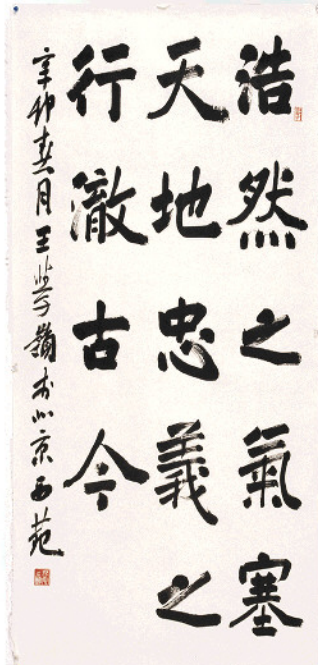 浩然之氣塞
天地忠義之
行澈古今
辛卯春月王学嶺书於北京西苑